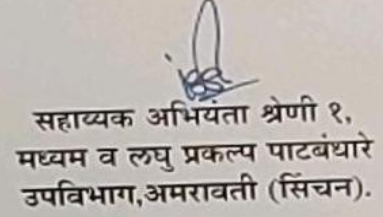 सहाय्यक अभियंता श्रेणी १,
मध्यम व लघु प्रकल्प पाटबंधारे
उपविभाग,अमरावती (सिंचन).